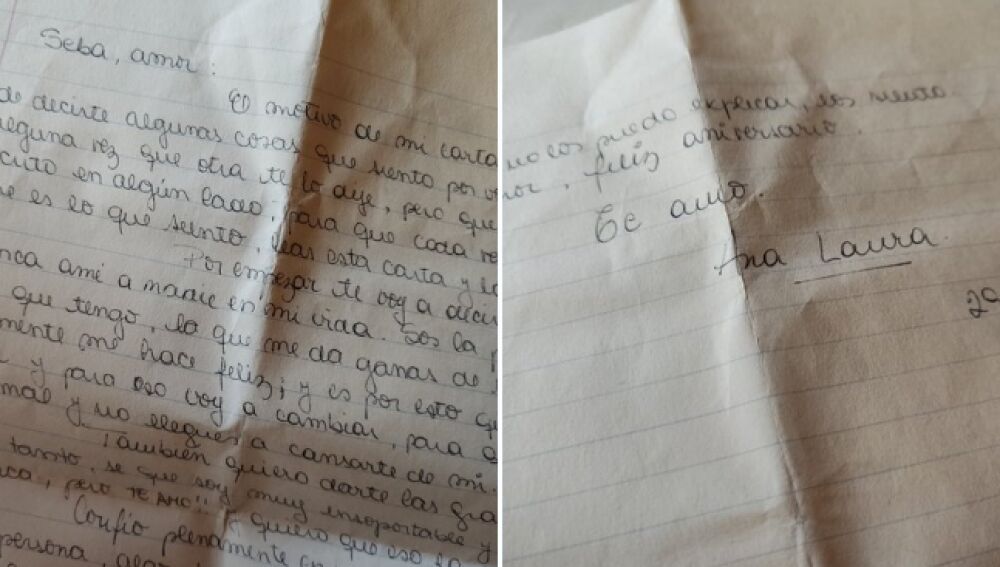 Seba, amor:
El motivo de mi carta
de decirte algunas cosas que siento por
alguna vez que otra te lo dije, pero que
en algún lado, para que cada
es lo que siento, leas esta carta y
Por empezar te voy a decir
amé a nadie en mi vida. Sos la
que tengo, lo que me da ganas de
mente me hace feliz; y es por esto
y para eso voy a cambiar, para
y no llegues a cansarte de mi.
También quiero darte las
tanto, se que soy muy insoportable y
pero TE AMO!! quiero que eso
Confio plenamente
persona,
no los puedo explicar,
feliz aniversario.
Te amo.
Ana Laura.